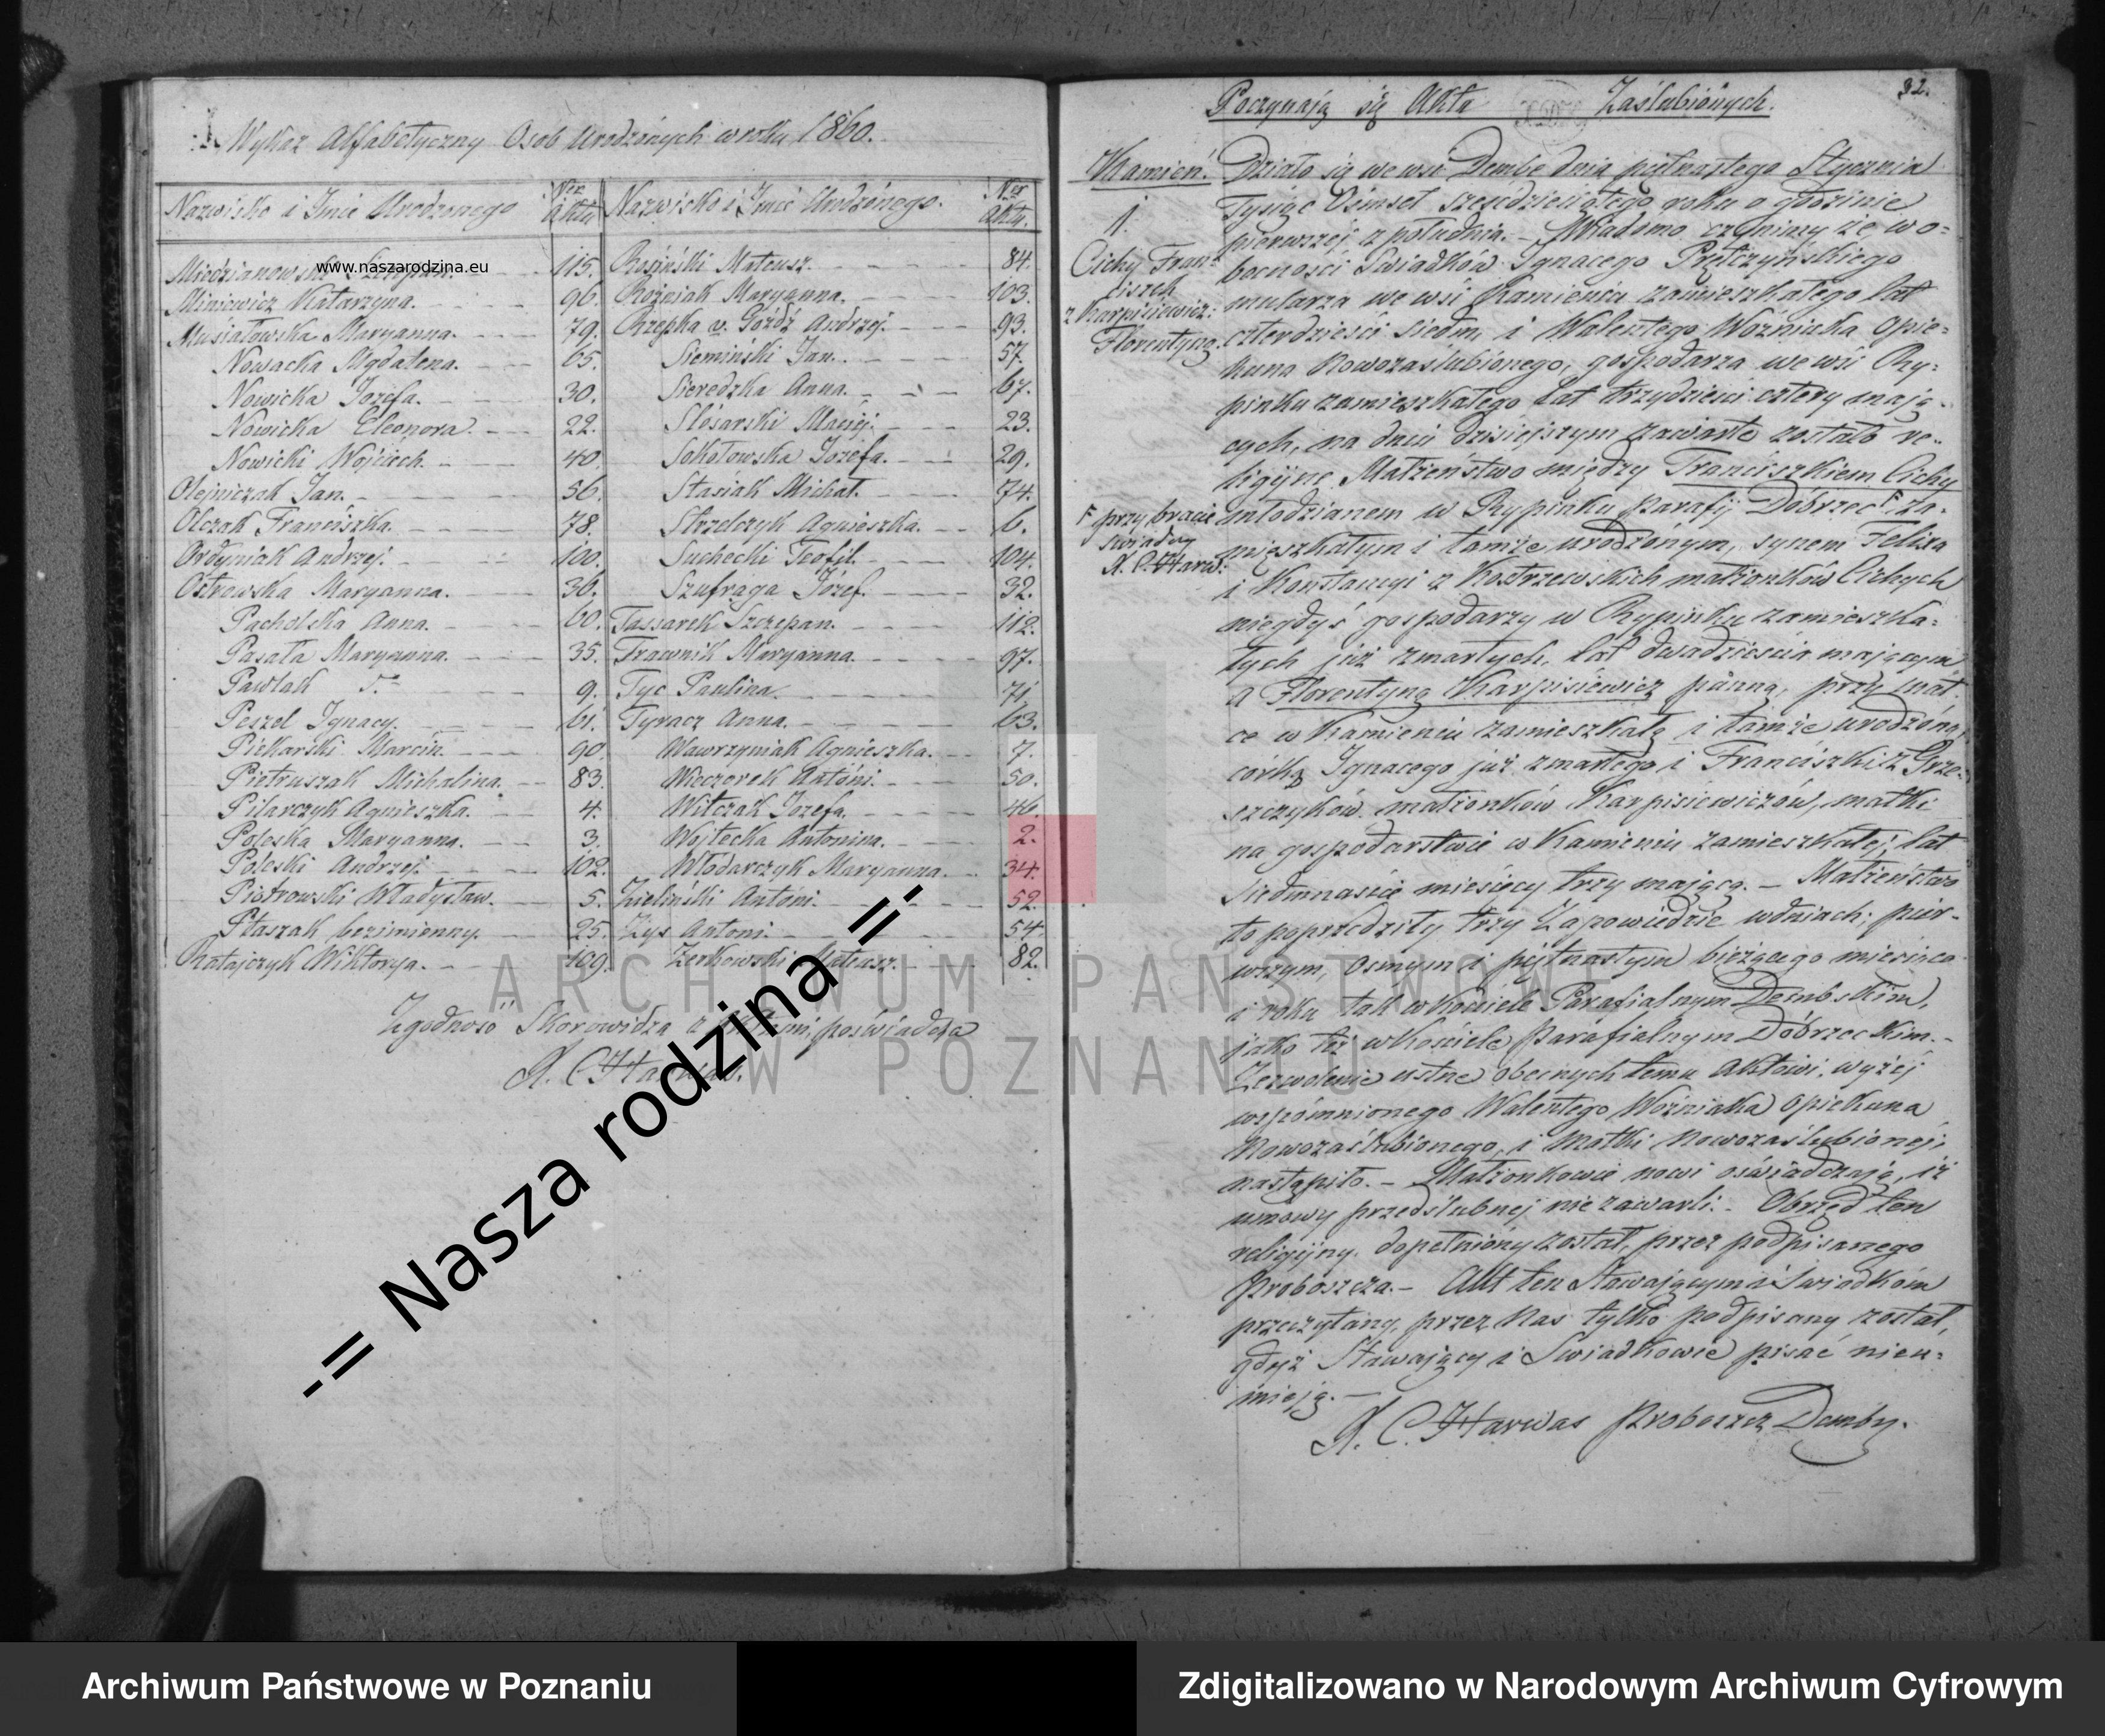 Wykaz Alfabetyczny Osob Urodzonych w roku 1860.
Nazwisko i Imie Urodzonego Nr. Aktu
Miedzianowski 115.
www.naszarodzina.eu
Miniewicz Katarzyna. 96.
Musiałowska Maryanna. 79.
Nowacka Magdalena. 65.
Nowicka Jozefa. 30.
Nowicka Eleonora. 22.
Nowicki Wojciech. 40.
Olejniczak Jan. 56.
Olczak Franciszka. 78.
Ordyniak Andrzej. 100.
Ostrowska Maryanna. 36.
Pacholska Anna. 60.
Pasała Maryanna. 35.
Pawlak 9.
Peszel Ignacy. 61.
Piekarski Marcin. 90.
Pietruszak Michalina. 83.
Pilarczyk Agnieszka. 4.
Poleska Maryanna. 3.
Poleski Andrzej. 102.
Piotrowski Władysław. 5.
Ptaszak bezimienny. 25.
Ratajczyk Wiktorya. 109.
Nazwisko i Imie Urodzonego. Nr Aktu.
Rosiński Mateusz. 84.
Rożniak Maryanna. 103.
Rzepka v. Góźdź Andrzej. 93.
Siemiński Jan. 57.
Sieredzka Anna. 67.
Slósarski Maciej. 23.
Sokołowska Józefa. 29.
Stasiak Michał. 74.
Strzelczyk Agnieszka. 6.
Suchecki Teofil. 104.
Szufraga Józef. 32.
Tassarek Szczepan. 112.
Trawnik Maryanna. 97.
Tyc Paulina. 71.
Tyracz Anna. 63.
Wawrzyniak Agnieszka. 7.
Wieczorek Antoni. 50.
Witczak Jozefa. 46.
Wojtecka Antonina. 2.
Włodarczyk Maryanna. 34.
Zieliński Antoni. 52.
Zys Antoni. 54.
Zerkowski Mateusz. 82.
Zgodność Skorowidza z Aktami, poświadcza
X. C. Harwas.
-= Nasza rodzina =-
ARCHIWUM PAŃSTWOWE
W POZNANIU
32.
Poczynają się Akta Zaślubionych.
Kamień.
1.
Cichy Fran=
ciszek
z Karpisiewicz:
Florentyną.
Działo się we wsi Dembe dnia piętnastego Stycznia
Tysiąc Ośmset sześćdziesiątego roku o godzinie
pierwszej z południa. – Wiadomo czynimy że w o=
becności Swiadków Ignacego Prętczyńskiego
mularza we wsi Kamieniu zamieszkałego lat
czterdzieści siedm, i Walentego Woźniaka Opie=
kuna Nowozaslubionego, gospodarza we wsi Ry=
pinku zamieszkałego lat trzydzieści cztery mają=
cych, na dniu dzisiejszym zawarte zostało re=
ligijne Małżeństwo między Franciszkiem Cichy
młodzianem w Rypinku parafij Dobrzec F za=
F przy bracie
świadczy
X. C. Harw:
mieszkałym i tamże urodzonym, synem Felixa
i Konstancyi z Kostrzewskich małżonków Cichych
niegdyś gospodarzy w Rypinku zamieszka=
łych już zmarłych, lat dwadzieścia mającym
a Florentyną Karpisiewicz panną, przy mat=
ce w Kamieniu zamieszkałą i tamże urodzoną,
corką Ignacego już zmarłego i Franciszki z Grze=
szczyków małżonków Karpisiewiczów, matki
na gospodarstwie w Kamieniu zamieszkałej, lat
siedmnaście miesięcy trzy mającą. – Małżeństwo
to poprzedziły trzy Zapowiedzie w dniach: pier=
wszym, osmym i piętnastym bieżącego miesiąca
i roku tak w kościele Parafialnym Dembskim,
jako też w kościele parafialnym Dobrzeckim. –
Zezwolenie ustne obecnych temu Aktowi, wyżej
wspomnionego Walentego Woźniaka opiekuna
Nowozaślubionego, i Matki Nowozaślubionej,
nastąpiło. – Małżonkowie nowi oświadczają, iż
umowy przedślubnej nie zawarli. – Obrzęd ten
religijny dopełniony został, przez podpisanego
Proboszcza. – Akt ten Stawającym i Swiadkom
przeczytany, przez Nas tylko podpisany został,
gdyż Stawający i Swiadkowie pisać nieu=
mieją. –
X. C. Harwas Proboszcz Demby.
Archiwum Państwowe w Poznaniu
Zdigitalizowano w Narodowym Archiwum Cyfrowym